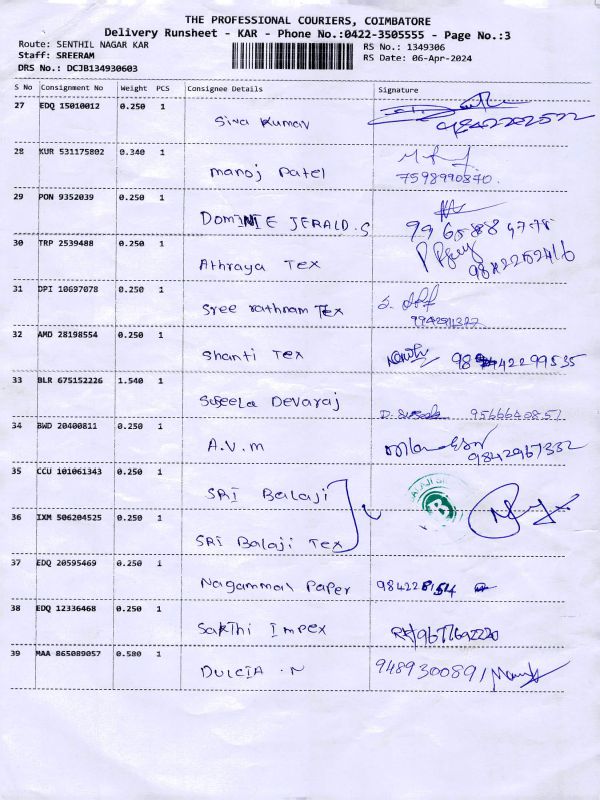 THE PROFESSIONAL COURIERS, COIMBATORE
Delivery Runsheet - KAR - Phone No.:0422-3505555 - Page No.:3
Route: SENTHIL NAGAR KAR RS No.: 1349306
Staff: SREERAM RS Date: 06-Apr-2024
DRS No.: DCJB134930603
S No Consignment No Weight PCS Consignee Details Signature
27 EDQ 15010012 0.250 1
Siva Kumar 9842202522
28 KUR 531175802 0.340 1
Manoj Patel 7598990870.
29 PON 9352039 0.250 1
DOMINIE JERALD.S
30 TRP 2539488 0.250 1
Athraya Tex
31 DPI 10697078 0.250 1
Sree rathnam Tex
32 AMD 28198554 0.250 1
Shanti Tex 9842299535
33 BLR 675152226 1.540 1
Suseela Devaraj 9566640851
34 BWD 20400811 0.250 1
A.V.M 9842967332
35 CCU 101061343 0.250 1
SRI Balaji
36 IXM 506204525 0.250 1
SRI Balaji Tex
37 EDQ 20595469 0.250 1
Nagammal Paper
38 EDQ 12336468 0.250 1
Sakthi Impex
39 MAA 865089057 0.580 1
DULCIA .N 9489300891